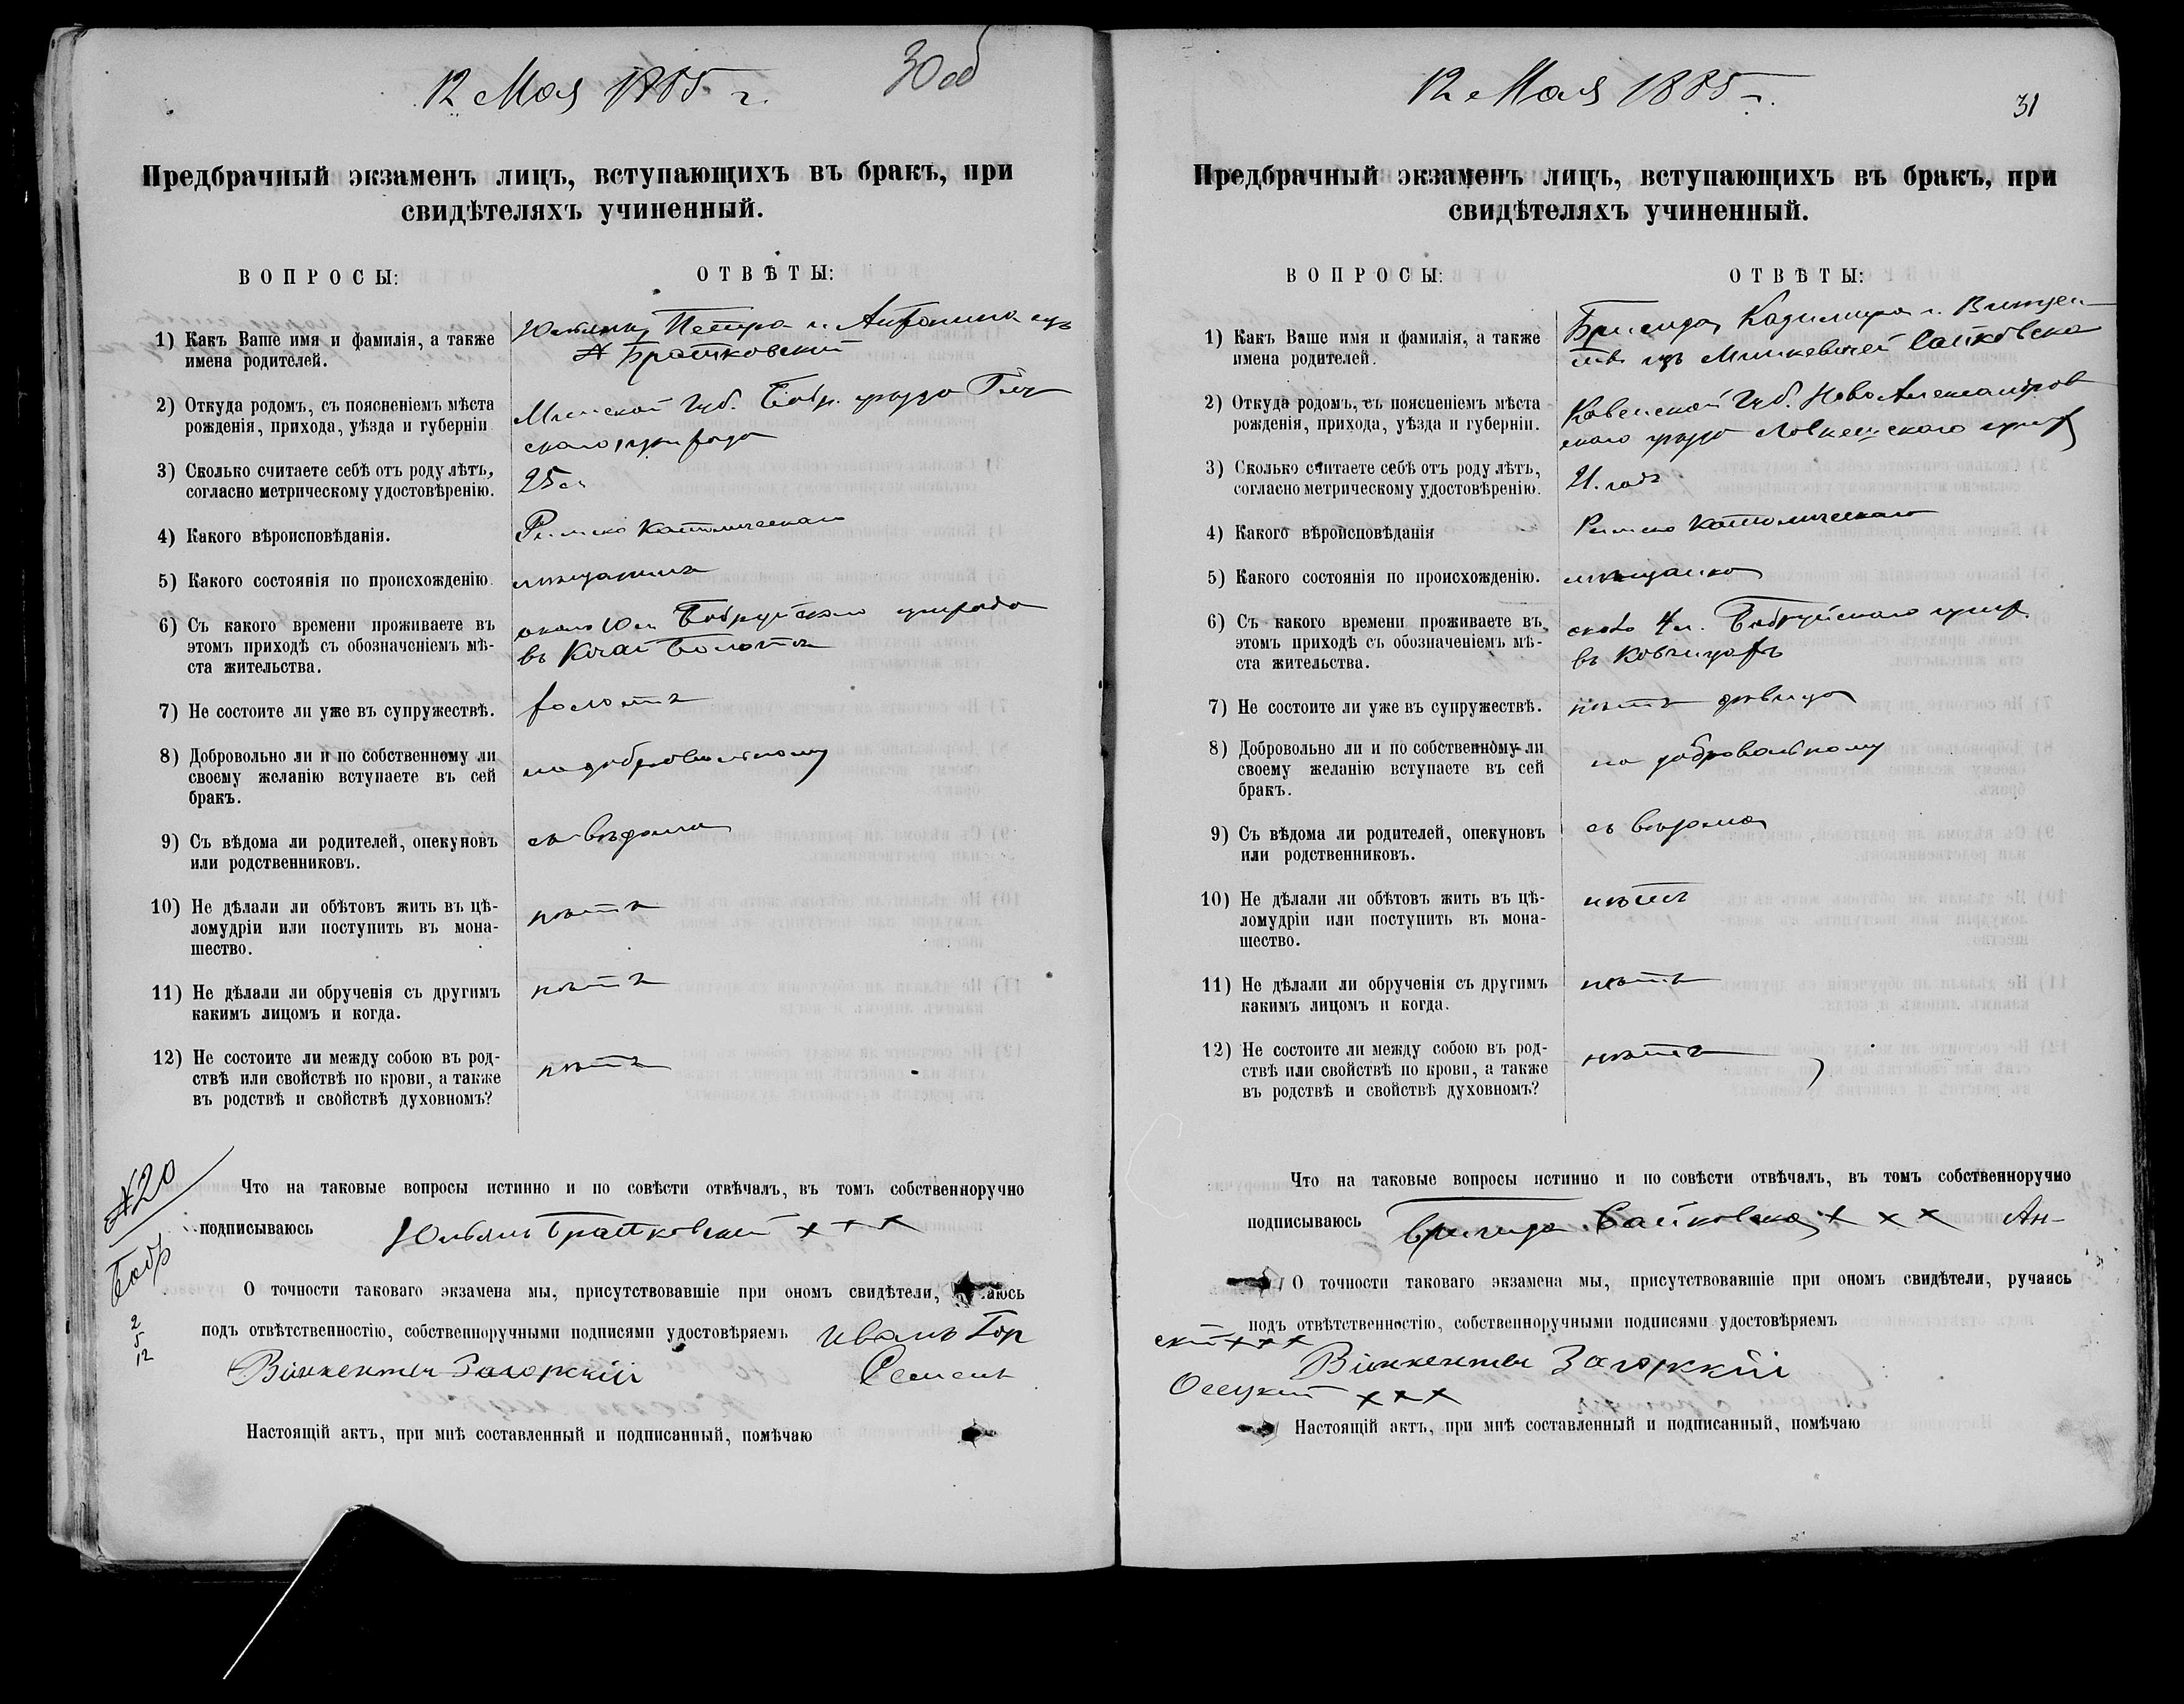 12 Мая 1885 г.
30 об
Предбрачный экзаменъ лицъ, вступающихъ въ бракъ, при
свидѣтеляхъ учиненный.
ВОПРОСЫ:
ОТВѢТЫ:
1) Какъ Ваше имя и фамилія, а также
имена родителей.
Юльянъ, Петра и Антонина изъ
Братковскій
2) Откуда родомъ, съ поясненіемъ мѣста
рожденія, прихода, уѣзда и губерніи
Минской Губ. Бобр. уѣзда
скаго прихода
3) Сколько считаете себѣ отъ роду лѣтъ,
согласно метрическому удостовѣренію.
25 л.
4) Какого вѣроисповѣданія.
Римско Католическаго
5) Какого состоянія по происхожденію
мѣщанинъ
6) Съ какого времени проживаете въ
этомъ приходѣ съ обозначеніемъ мѣ-
ста жительства.
около 10 л. Бобруйскаго прихода
въ
7) Не состоите ли уже въ супружествѣ.
холостъ
8) Добровольно ли и по собственному ли
своему желанію вступаете въ сей
бракъ.
по добровольному
9) Съ вѣдома ли родителей, опекуновъ
или родственниковъ.
съ вѣдома
10) Не дѣлали ли обѣтовъ жить въ цѣ-
ломудріи или поступить въ мона-
шество.
нѣтъ
11) Не дѣлали ли обрученія съ другимъ
какимъ лицомъ и когда.
нѣтъ
12) Не состоите ли между собою въ род-
ствѣ или свойствѣ по крови, а также
въ родствѣ и свойствѣ духовномъ?
нѣтъ
№20
Бобр
2
5
12
Что на таковые вопросы истинно и по совѣсти отвѣчалъ, въ томъ собственноручно
подписываюсь Юльянъ Братковскій × × ×
О точности таковаго экзамена мы, присутствовавшіе при ономъ свидѣтели, аюсь
подъ отвѣтственностію, собственноручными подписями удостовѣряемъ Иванъ Гор
Винкентій Загорккій Семенъ
Настоящій актъ, при мнѣ составленный и подписанный, помѣчаю
12 Мая 1885 г.
31
Предбрачный экзаменъ лицъ, вступающихъ въ бракъ, при
свидѣтеляхъ учиненный.
ВОПРОСЫ:
ОТВѢТЫ:
1) Какъ Ваше имя и фамилія, а также
имена родителей.
Бригида, Казимира и Винцен-
изъ Мицкевичей
2) Откуда родомъ, съ поясненіемъ мѣста
рожденія, прихода, уѣзда и губерніи.
Ковенской Губ. Ново Александров
скаго уѣзда прих
3) Сколько считаете себѣ отъ роду лѣтъ,
согласно метрическому удостовѣренію.
21. годъ
4) Какого вѣроисповѣданія
Римско Католическаго
5) Какого состоянія по происхожденію.
мѣщанка
6) Съ какого времени проживаете въ
этомъ приходѣ съ обозначеніемъ мѣ-
ста жительства.
около 4 л. Бобруйскаго прих.
въ Ковчицахъ
7) Не состоите ли уже въ супружествѣ.
нѣтъ дѣвица
8) Добровольно ли и по собственному ли
своему желанію вступаете въ сей
бракъ.
по добровольному
9) Съ вѣдома ли родителей, опекуновъ
или родственниковъ.
съ вѣдома
10) Не дѣлали ли обѣтовъ жить въ цѣ-
ломудріи или поступить въ мона-
шество.
нѣтъ
11) Не дѣлали ли обрученія съ другимъ
какимъ лицомъ и когда.
нѣтъ
12) Не состоите ли между собою въ род-
ствѣ или свойствѣ по крови, а также
въ родствѣ и свойствѣ духовномъ?
нѣтъ
Что на таковые вопросы истинно и по совѣсти отвѣчалъ, въ томъ собственноручно
подписываюсь Бригида × × × Ан-
О точности таковаго экзамена мы, присутствовавшіе при ономъ свидѣтели, ручаясь
подъ отвѣтственностію, собственноручными подписями удостовѣряемъ
скій × × ×
Винкентій Загорккій
Осецкій × × ×
Настоящій актъ, при мнѣ составленный и подписанный, помѣчаю